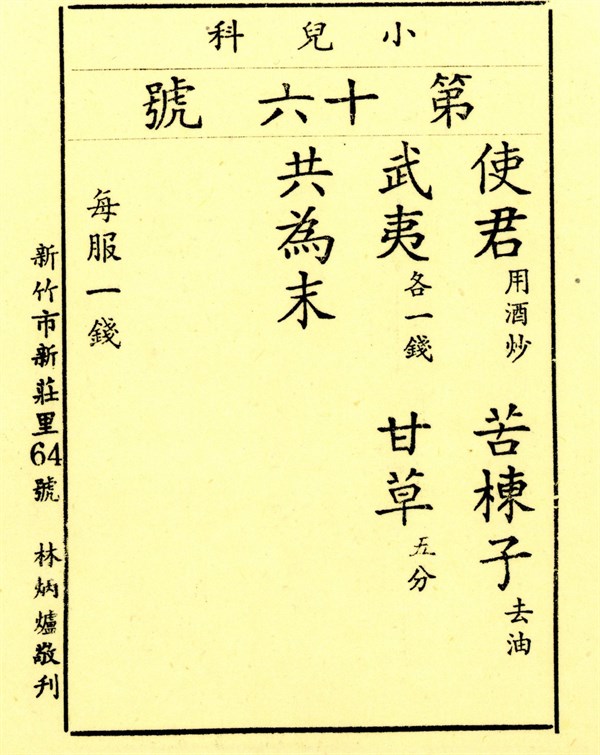 小兒科
第十六號
使君用酒炒 苦楝子去油
武夷各一錢 甘草五分
共為末
每服一錢
新竹市新莊里64號 林炳爐敬刊